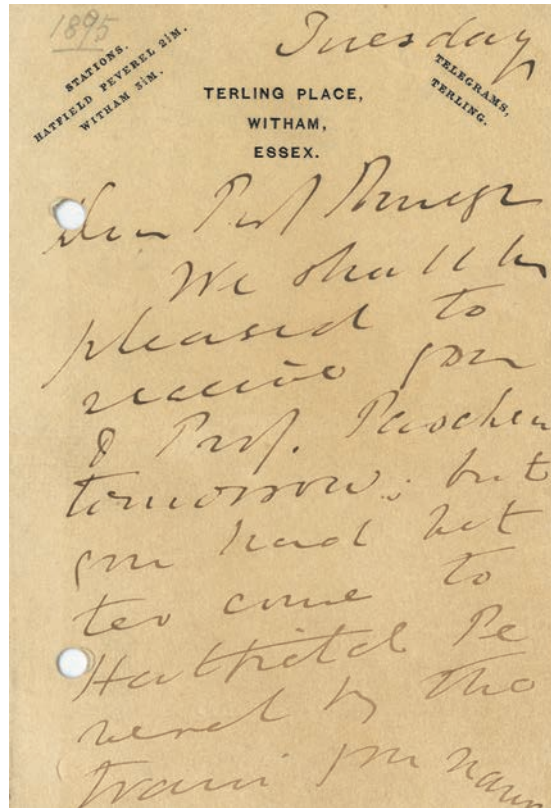 1895
Tuesday
STATIONS.
HATFIELD PEVEREL 2½M.
WITHAM 3½M.
TELEGRAMS,
TERLING.
TERLING PLACE,
WITHAM,
ESSEX.
Dear Prof Runge
We shall be
pleased to
receive you
& Prof. Paschen
tomorrow; but
you had bet
ter come to
Hatfield Pe
verel by the
train you name